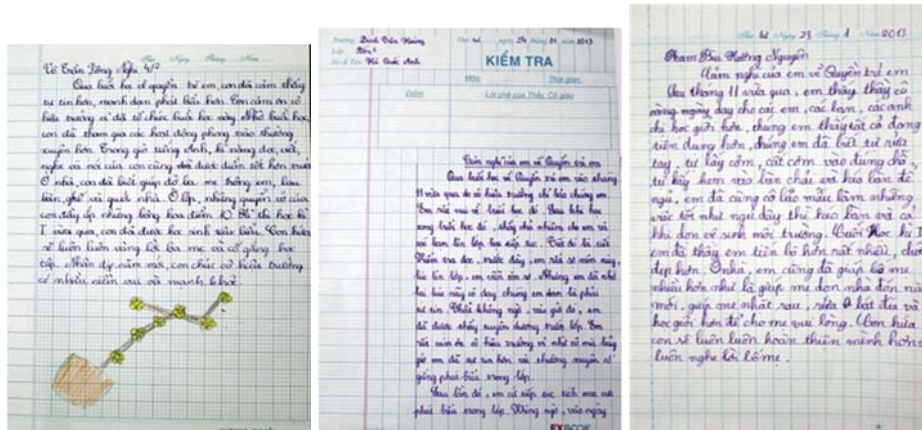 Thứ Ngày Tháng Năm
Võ Trần Đông Nghi 4/2
Qua buổi học về quyền trẻ em, con đã cảm thấy
tự tin hơn, mạnh dạn phát biểu hơn. Con cảm ơn cô
hiệu trưởng vì đã tổ chức buổi học này. Nhờ buổi học,
con đã tham gia các hoạt động phong trào thường
xuyên hơn. Trong giờ tiếng Anh, kĩ năng đọc, viết,
nghe và nói của con cũng đã được điểm tốt hơn trước
Ở nhà, con đã biết giúp đỡ ba mẹ trông em, lau
bàn, ghế và quét nhà. Ở lớp, những quyển vở của
con đầy ắp những bông hoa điểm 10. Kì thi học kì
I vừa qua, con đã được học sinh tiêu biểu. Con hứa
sẽ luôn luôn vâng lời ba mẹ và cố gắng học
tập. Nhân dịp năm mới, con chúc cô hiệu trưởng
có nhiều niềm vui và mạnh khoẻ.
Trường: Đinh Tiên Hoàng
Lớp: Bốn
Thứ tư ngày tháng 01 năm 2013
KIỂM TRA
Môn: Thời gian:
Điểm
Lời phê của Thầy, Cô giáo
Cảm nghĩ của em về Quyền trẻ em
Qua buổi học về Quyền trẻ em vào tháng
11 vừa qua do cô hiệu trưởng chỉ bảo chúng em.
Em rất vui về buổi học đó. Sau khi học
xong buổi học đó, thầy chủ nhiệm cho em và
các bạn lên lớp học tiếp tục. Tiết đó là tiết
Kiểm tra đọc, trước đây, em rất sợ môn này,
lúc lên lớp, em vẫn còn sợ. Nhưng em đã nhớ
là lúc nãy cô dạy chúng em làm là phải
tự tin. Thật không ngờ, vài giờ đó, em
đã được thầy tuyên dương trước lớp. Em
rất cảm ơn cô hiệu trưởng vì nhờ cô mà bây
giờ em đã tự tin hơn và thường xuyên cố
gắng phát biểu trong lớp.
Sau lần đó, em cứ tiếp tục tích cực
phát biểu trong lớp. Không ngờ, vào ngày
Thứ tư Ngày 23 Tháng 1 Năm 2013
Phạm Bùi Hương Nguyên
Cảm nghĩ của em về Quyền trẻ em
Vào tháng 11 vừa qua, em thấy thầy cô
càng ngày dạy cho các em, các bạn, các anh
chị học giỏi hơn, chúng em thấy tất cả đang
tiến dung hơn, chúng em đã biết tự rửa
tay, tự lấy cơm, cất cơm vào đúng chỗ
ngủ, em đã cùng cô lao mẫu làm những
việc tốt như ngủ dậy thì kéo bàn và có
khi dọn vệ sinh môi trường. Cuối học kì I
em đã thấy em tiến bộ hơn rất nhiều, chữ
đẹp hơn. Ở nhà, em cũng đã giúp bố mẹ
nhiều hơn như là giúp mẹ dọn nhà đón năm
mới, giúp mẹ nhặt rau, rửa bát đũa và
học giỏi hơn để cho mẹ vui lòng. Con hứa
con sẽ luôn luôn hoàn thiện mình hơn
luôn nghe lời bố mẹ.